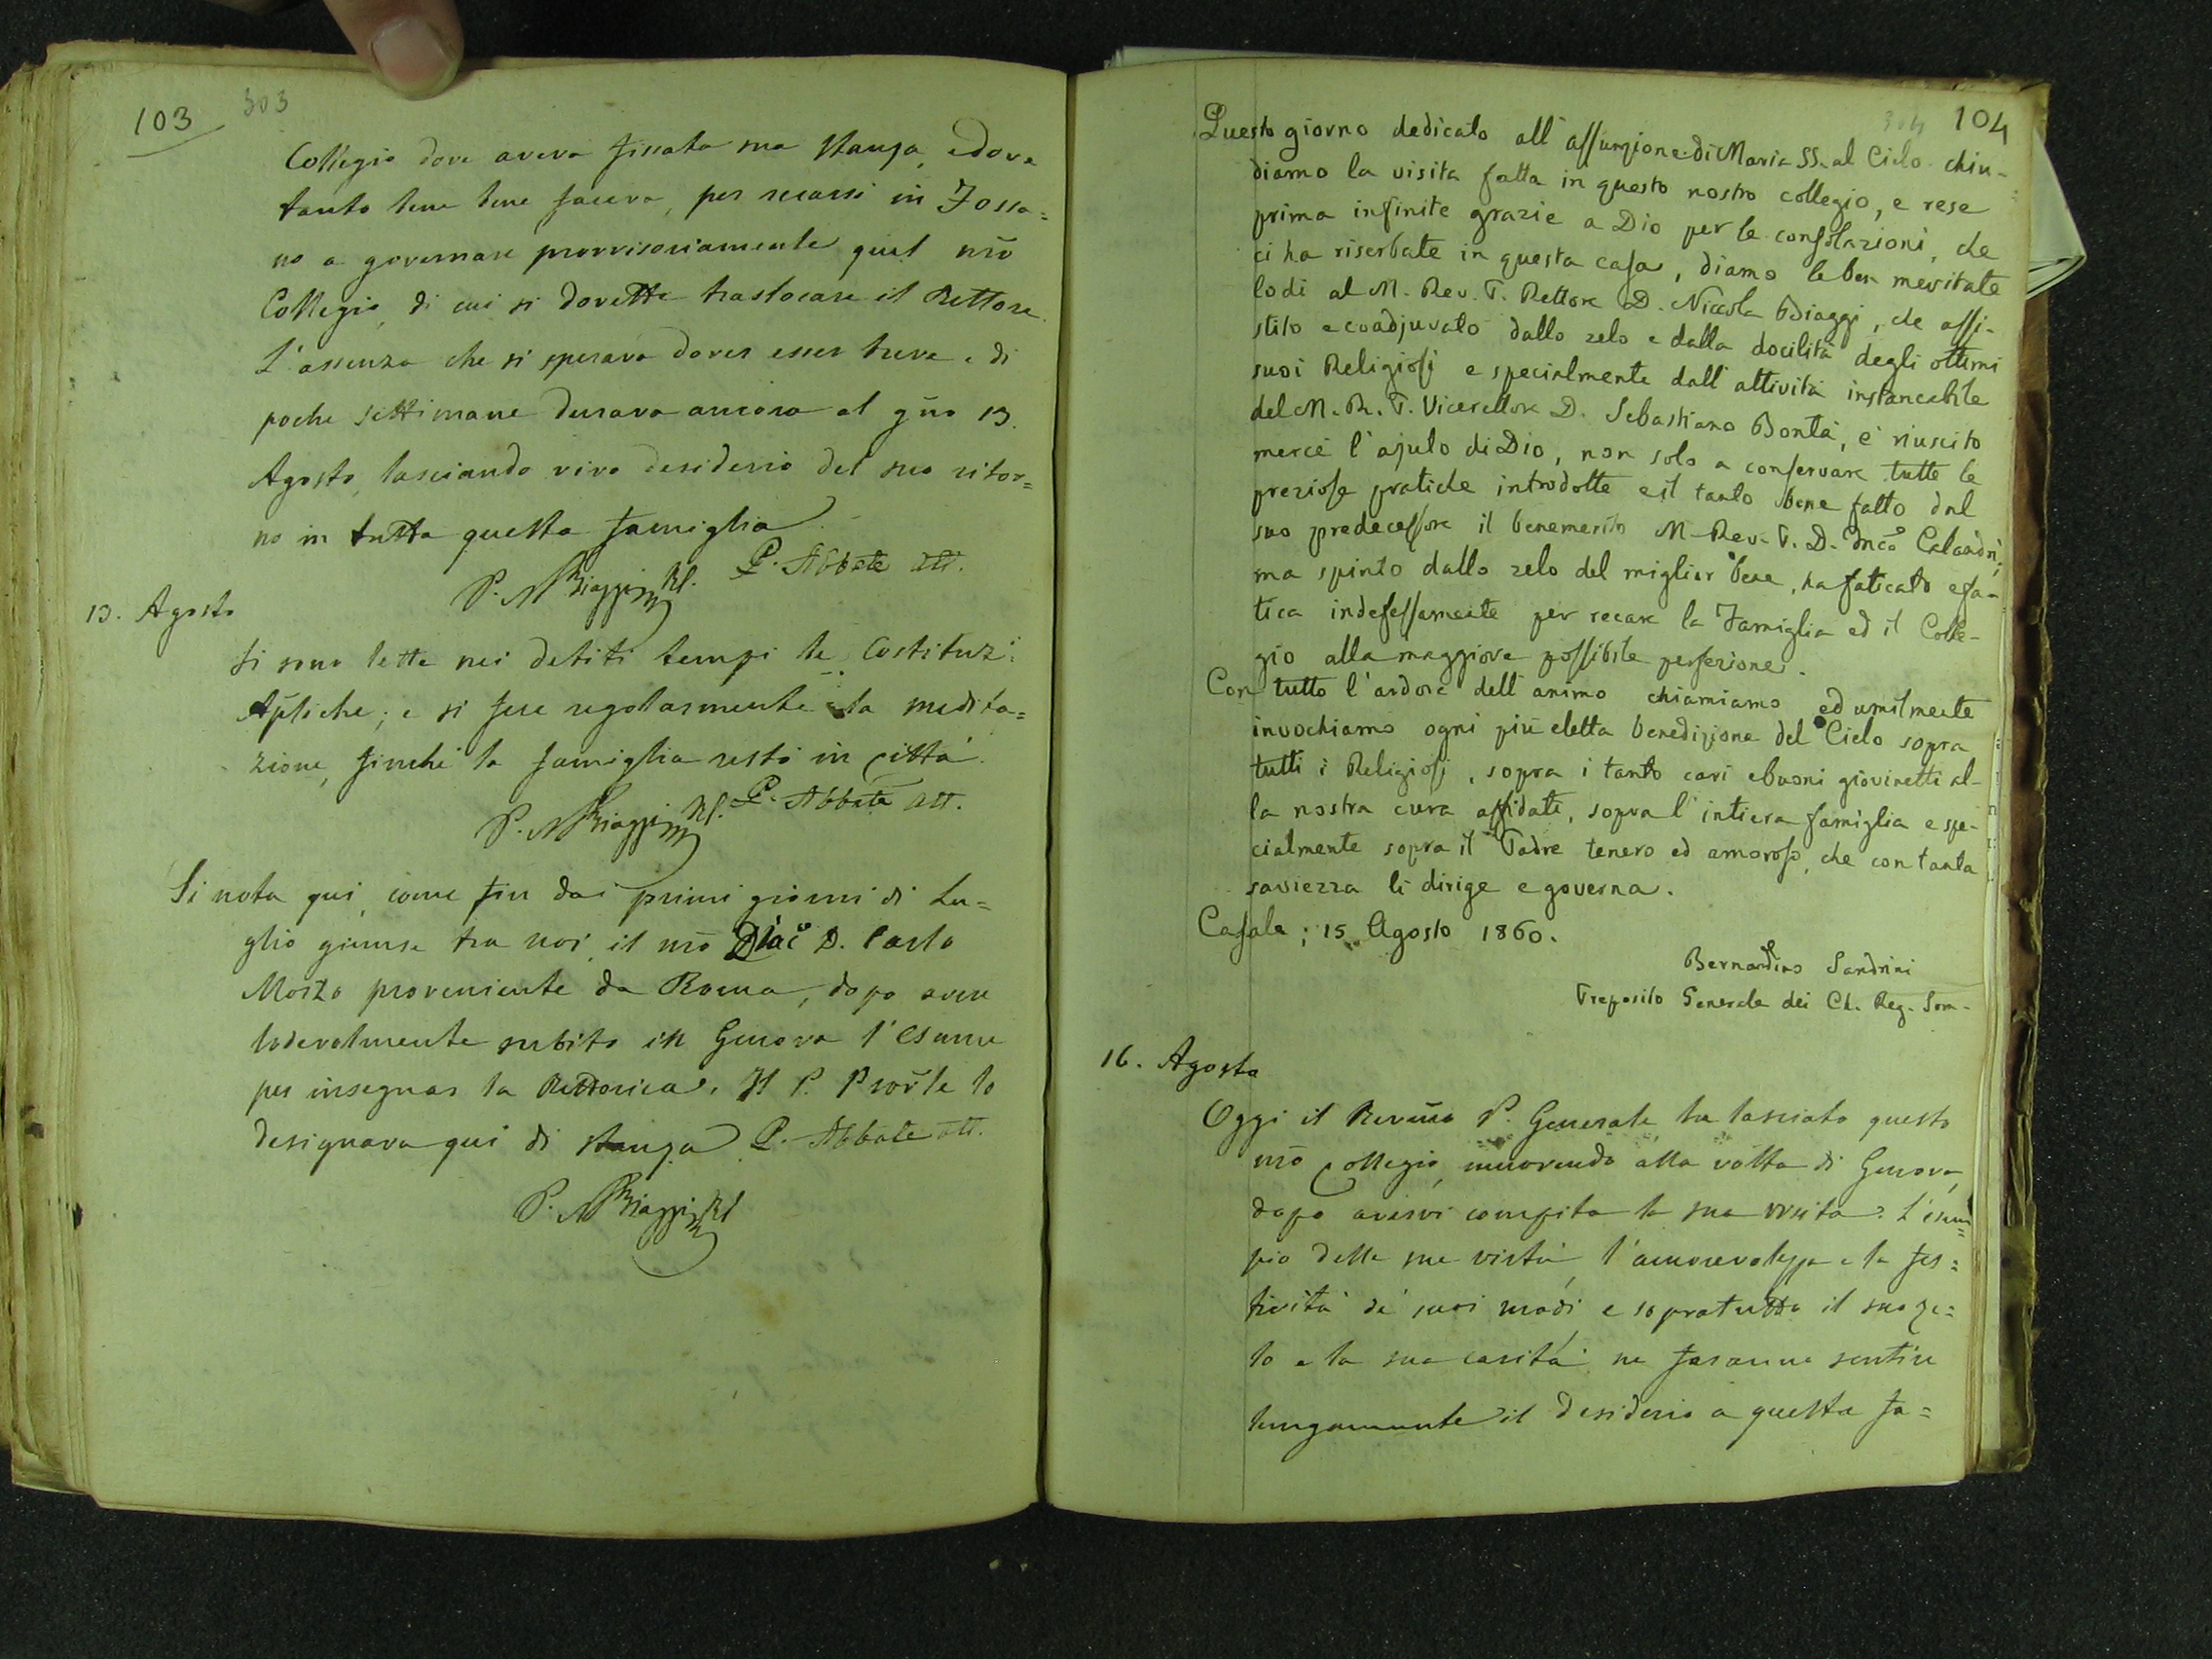 103 303
Collegio dove aveva fissata sua stanza, e dove
tanto bene bene faceva, per recarsi in Fossa=
no a governare provvisoriamente quel nrō
Collegio, di cui si dovette traslocare il Rettore.
L'assenza che si sperava dover esser breve e di
poche settimane durava ancora al gño 13.
Agosto, lasciando vivo desiderio del suo ritor=
no in tutta questa famiglia.
P. N Biaggi Rf. P. Abbate att.
13. Agosto
Si sono lette nei debiti tempi le Costituzi.
Aplīche; e si fece regolarmente la medita=
zione, finchè la famiglia restò in città.
P. N Biaggi Rf. P. Abbate att.
Si nota qui, come fin dai primi giorni di Lu=
glio giunse tra noi, il nrō Diac̄o D. Carlo
Moizo proveniente da Roma, dopo aver
lodevolmente subito in Genova l'esame
per insegnar la Rettorica. Il P. Provl̄e lo
designava qui di stanza. P. Abbate att.
P. N Biaggi Rf
304 104
Questo giorno dedicato all'assunzione di Maria SS. al Cielo chiu-
diamo la visita fatta in questo nostro collegio, e rese
prima infinite grazie a Dio per le consolazioni, che
ci ha riserbate in questa casa, diamo le ben meritate
lodi al M. Rev. P. Rettore D. Niccola Biaggi, che assi-
stito e coadjuvato dallo zelo e dalla docilità degli ottimi
suoi Religiosi e specialmente dall'attività instancabile
del M. R. P. Vicerettore D. Sebastiano Bontà, è riuscito
mercè l'ajuto di Dio, non solo a conservare tutte le
preziose pratiche introdotte e il tanto bene fatto dal
suo predecessore il benemerito M. Rev. P. D. Frnc̄o Calandri,
ma spinto dallo zelo del miglior bene, ha faticato e fa-
tica indefessamente per recare la Famiglia ed il Colle-
gio alla maggiore possibile perfezione.
Con tutto l'ardore dell'animo chiamiamo ed umilmente
invochiamo ogni più eletta benedizione del Cielo sopra
tutti i Religiosi, sopra i tanto cari e buoni giovinetti al-
la nostra cura affidati, sopra l'intiera famiglia e spe-
cialmente sopra il Padre tenero ed amoroso, che con tanta
saviezza li dirige e governa.
Casale; 15 Agosto 1860.
Bernardino Sandrini
Preposito Generale dei Ch. Reg. Som-
16. Agosto
Oggi il Revmō P. Generale ha lasciato questo
nrō Collegio, muovendo alla volta di Genova,
dopo avervi compita la sua visita. L'esem=
pio delle sue virtù, l'amorevolezza e la fes=
tività de' suoi modi e sopratutto il suo ze=
lo e la sua carità ne faranno sentire
lungamente il desiderio a questa fa=